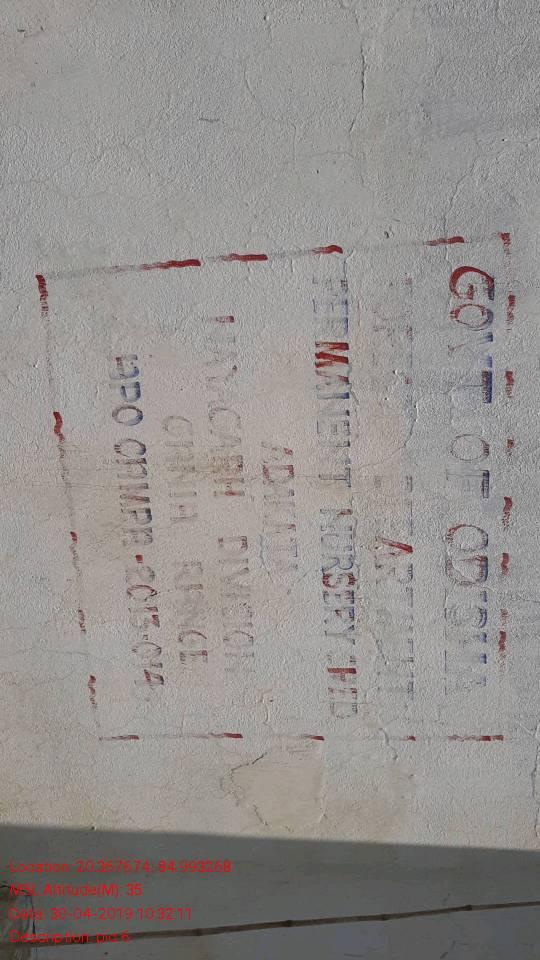 GOVT. OF ODISHA
FOREST DEPARTMENT
PERMANENT NURSERY SHED
NAYAGARH DIVISION
GANIA RANGE
APO CAMPA-2013-014
Location: 20.367674, 84.993268
MSL Altitude(M): 35
Date: 30-04-2019 10:32:11
Description: pic 6